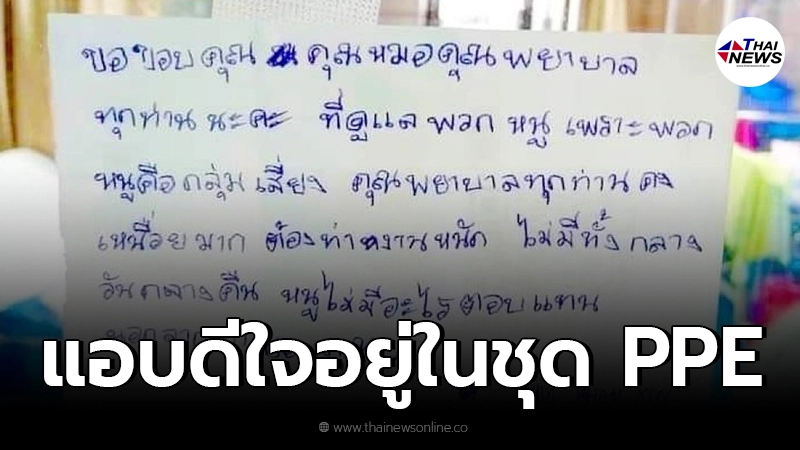 THAI
NEWS
www.thainewsonline.co
ขอขอบคุณ คุณหมอคุณพยาบาล
ทุกท่านนะคะ ที่ดูแลพวกหนู เพราะพวก
หนูคือกลุ่มเสี่ยง คุณพยาบาลทุกท่านคง
เหนื่อยมาก ต้องทำงานหนัก ไม่มีทั้งกลาง
วันกลางคืน หนูไม่มีอะไรตอบแทน
แอบดีใจอยู่ในชุด PPE
www.thainewsonline.co